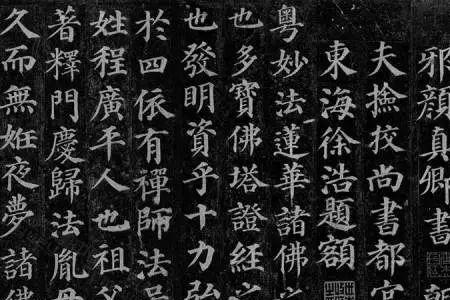 邪顏真卿書
夫撿挍尚書都官
東海徐浩題額
粵妙法蓮華諸佛之
也多寶佛塔證經之
也發明資乎十力弘
於四依有禪師法
姓程廣平人也祖父
著釋門慶歸法胤母
久而無姙夜夢諸佛